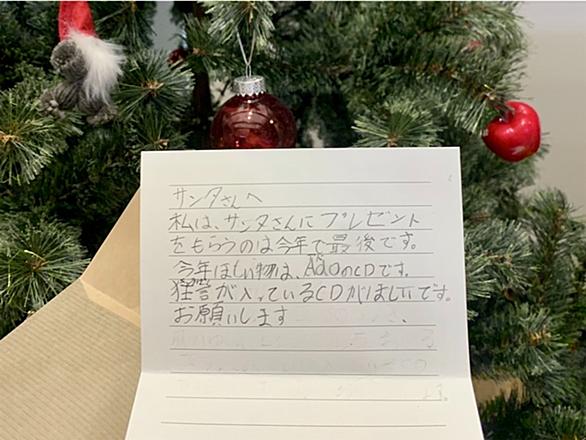 サンタさんへ
私は、サンタさんにプレゼント
をもらうのは今年で最後です。
今年ほしい物は、AdoのCDです。
狂言が入っているCDがほしいです。
お願いします